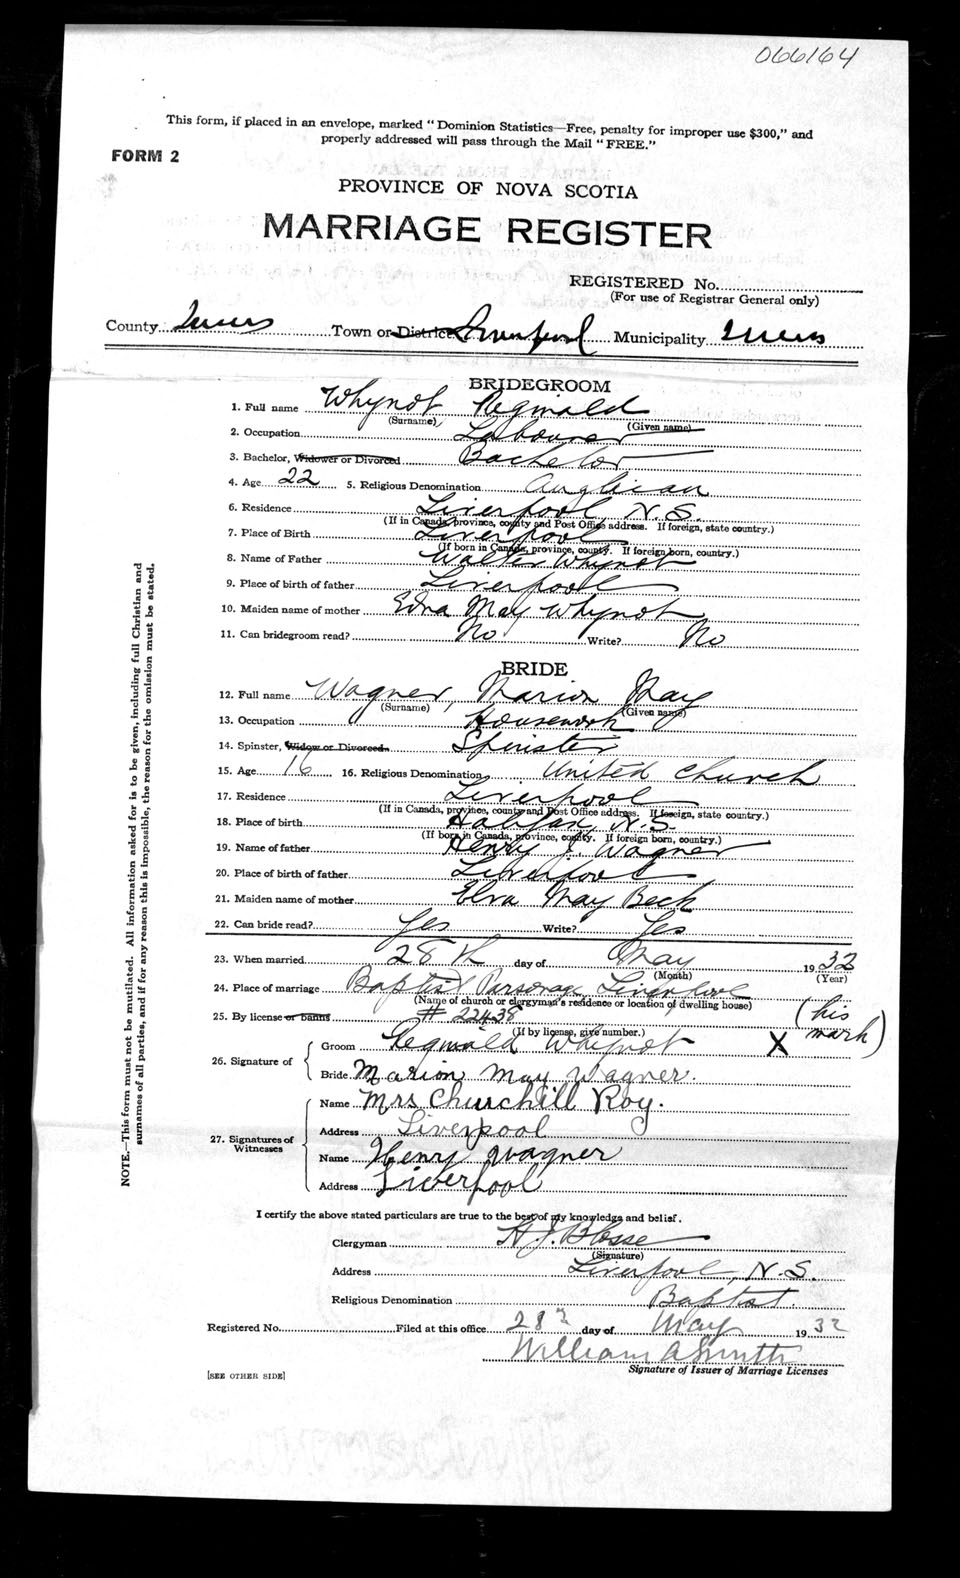 066164
This form, if placed in an envelope, marked "Dominion Statistics—Free, penalty for improper use $300," and
properly addressed will pass through the Mail "FREE."
FORM 2
PROVINCE OF NOVA SCOTIA
MARRIAGE REGISTER
REGISTERED No.
(For use of Registrar General only)
County Queens Town or District Liverpool Municipality Queens
BRIDEGROOM
1. Full name Whynot Reginald
(Surname) (Given name)
2. Occupation Labourer
3. Bachelor, Widower or Divorced Bachelor
4. Age 22 5. Religious Denomination Anglican
6. Residence Liverpool, N.S.
(If in Canada, province, county and Post Office address. If foreign, state country.)
7. Place of Birth Liverpool
(If born in Canada, province, county. If foreign born, country.)
8. Name of Father Walter Whynot
9. Place of birth of father Liverpool
10. Maiden name of mother Edna May Whynot
11. Can bridegroom read? No Write? No
BRIDE
12. Full name Wagner, Marion May
(Surname) (Given name)
13. Occupation Housework
14. Spinster, Widow or Divorced Spinster
15. Age 16 16. Religious Denomination United Church
17. Residence Liverpool
(If in Canada, province, county and Post Office address. If foreign, state country.)
18. Place of birth Halifax, N.S.
(If born in Canada, province, county. If foreign born, country.)
19. Name of father Henry J. Wagner
20. Place of birth of father Liverpool
21. Maiden name of mother Elva May Beck
22. Can bride read? Yes Write? Yes
23. When married 28th day of May 1932
(Month) (Year)
24. Place of marriage Baptist Parsonage Liverpool
(Name of church or clergyman's residence or location of dwelling house)
25. By license or banns # 22438 (his
(If by license, give number.)
26. Signature of Groom Reginald Whynot X mark)
Bride Marion May Wagner.
27. Signatures of Witnesses
Name Mrs Churchill Roy.
Address Liverpool
Name Henry Wagner
Address Liverpool
I certify the above stated particulars are true to the best of my knowledge and belief.
Clergyman H. J. Blosse
(Signature)
Address Liverpool, N.S.
Religious Denomination Baptist.
Registered No. Filed at this office 28 day of May 1932
William A Smith
Signature of Issuer of Marriage Licenses
[SEE OTHER SIDE]
NOTE.—This form must not be mutilated. All information asked for is to be given, including full Christian and
surnames of all parties, and if for any reason this is impossible, the reason for the omission must be stated.